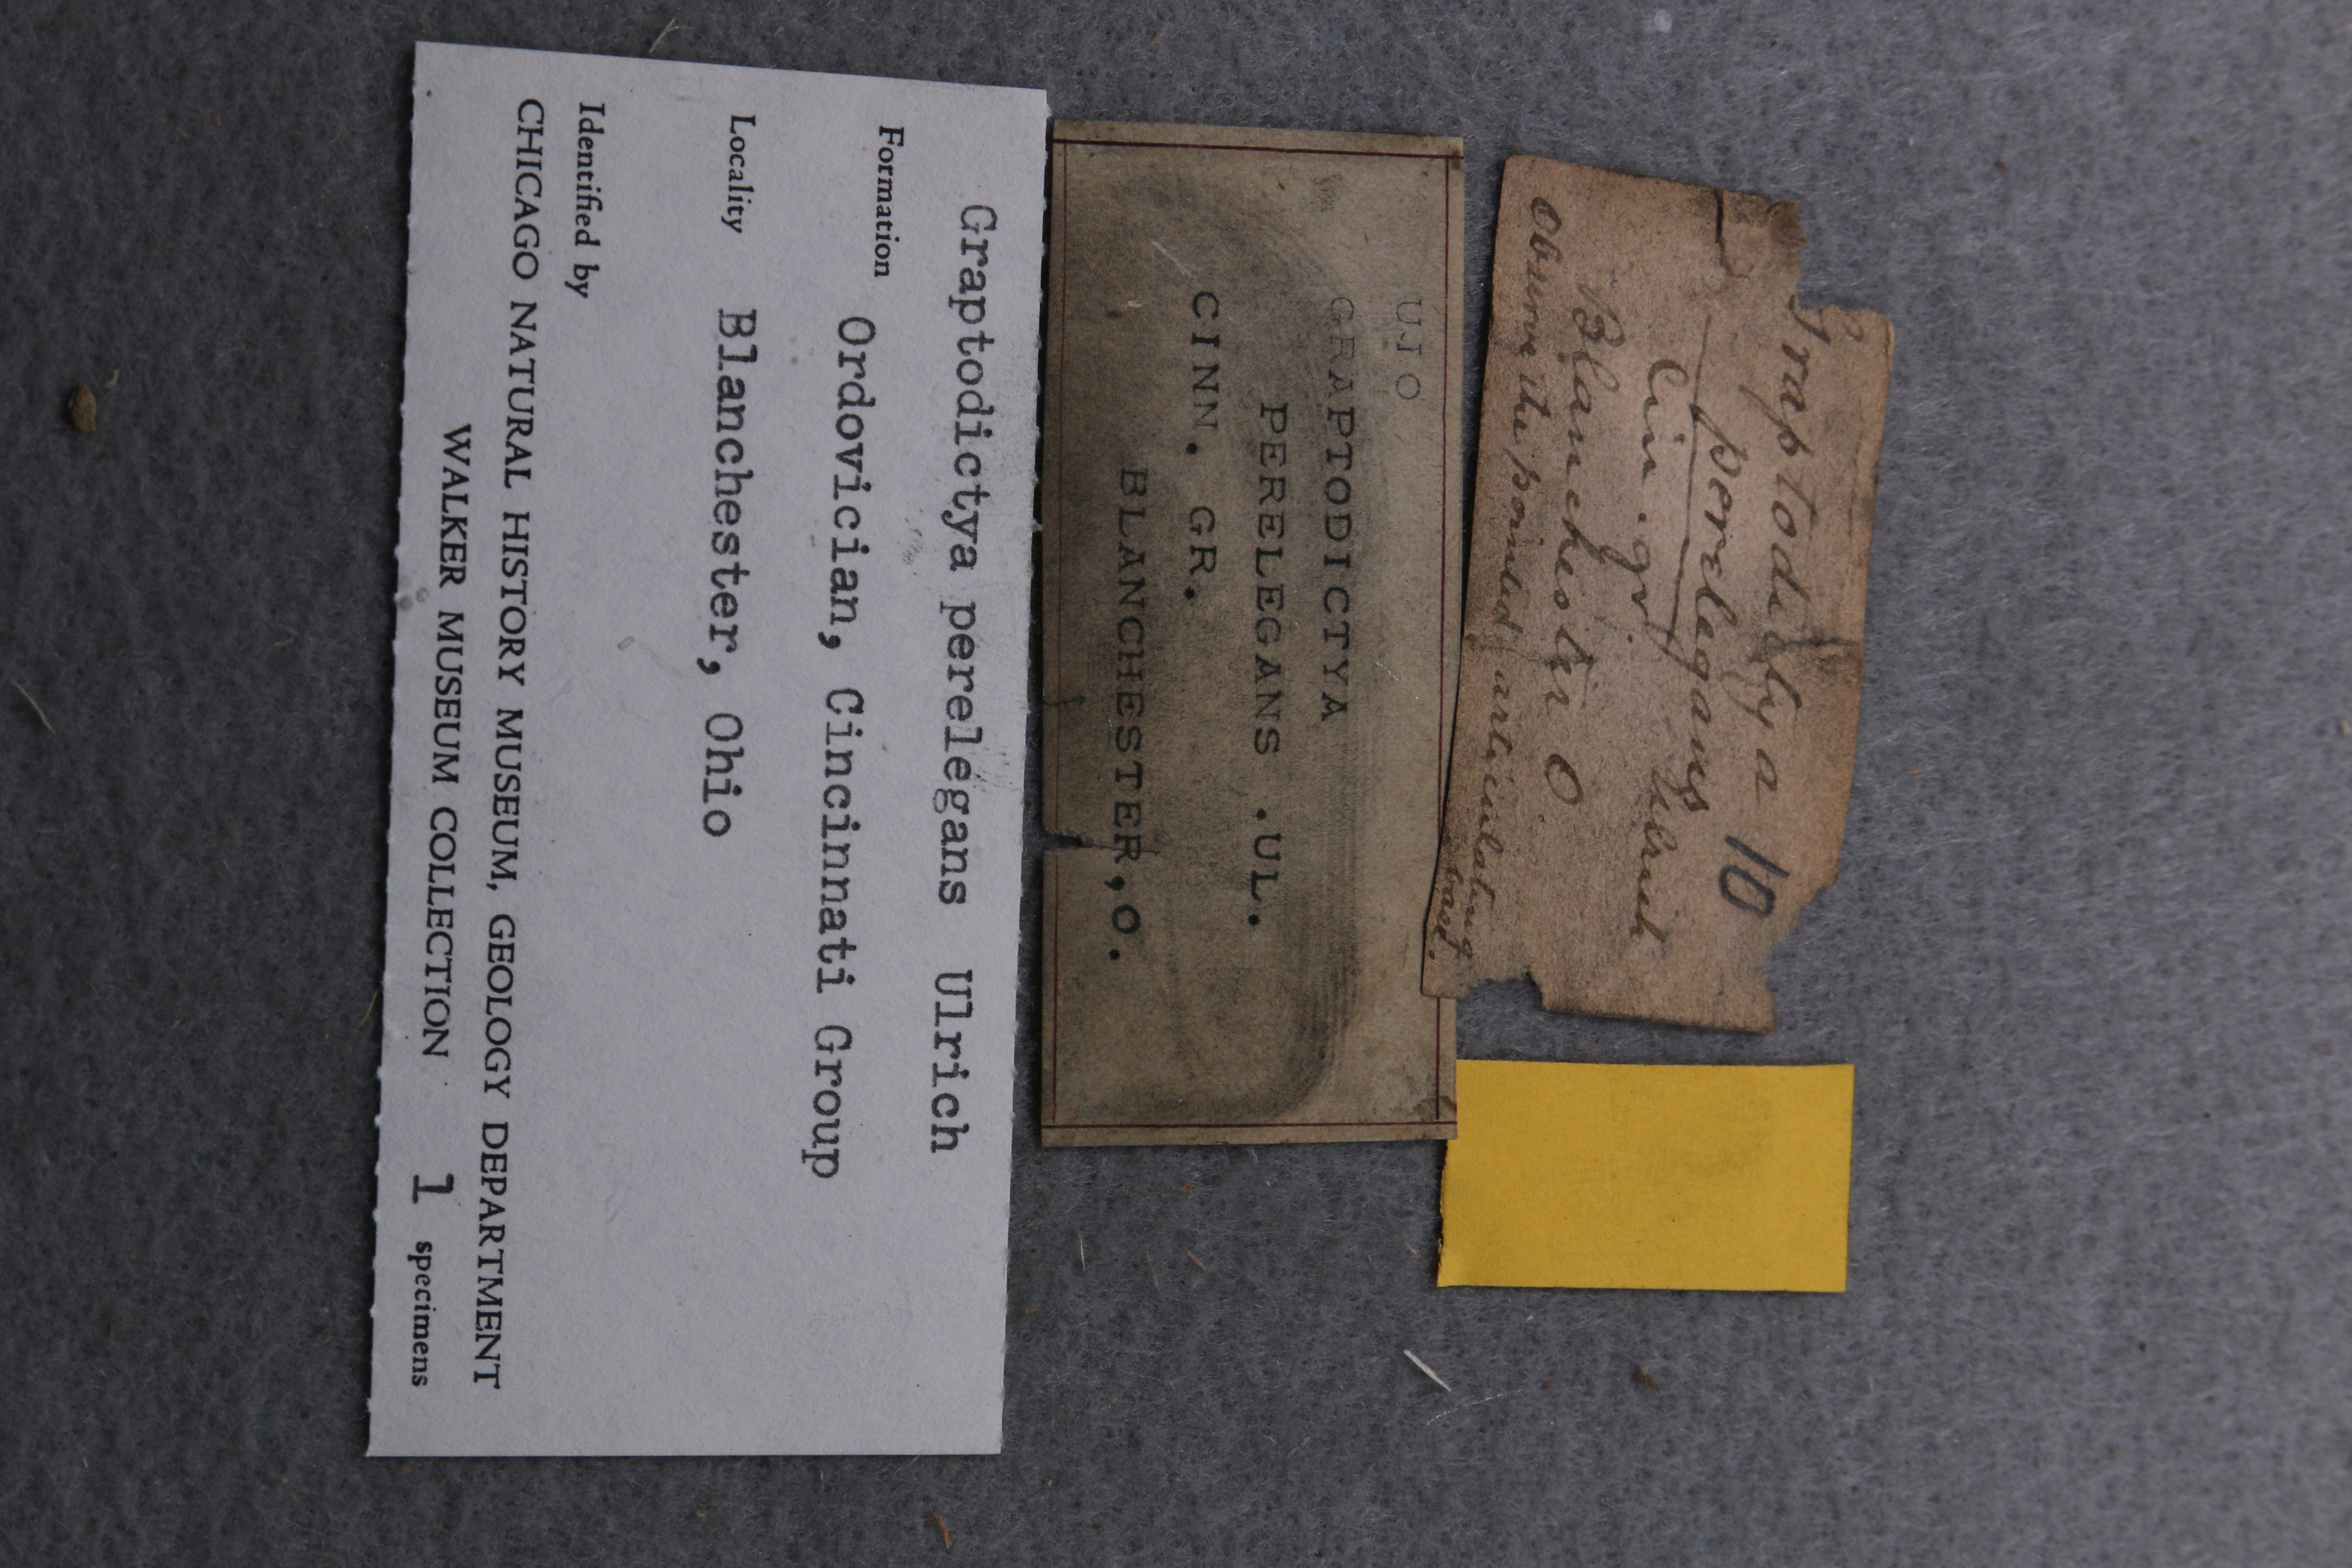 Graptodictya perelegans Ulrich
Formation Ordovician, Cincinnati Group
Locality Blanchester, Ohio
Identified by
CHICAGO NATURAL HISTORY MUSEUM, GEOLOGY DEPARTMENT
WALKER MUSEUM COLLECTION 1 specimens
UJO
GRAPTODICTYA
PERELEGANS .UL.
CINN. GR.
BLANCHESTER,O.
10
perelegans
Ulrich
Cin. gr.
Blanchester O
observe the pointed articulating
base.